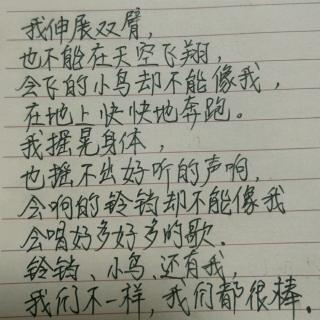 我伸展双臂，
也不能在天空飞翔，
会飞的小鸟却不能像我，
在地上快快地奔跑。
我摇晃身体，
也摇不出好听的声响，
会响的铃铛却不能像我
会唱好多好多的歌．
铃铛、小鸟、还有我，
我们不一样，我们都很棒．